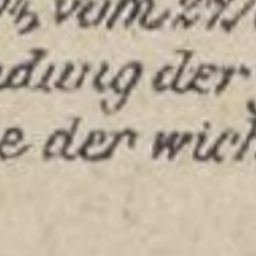 vom 27
dung der
e der wich